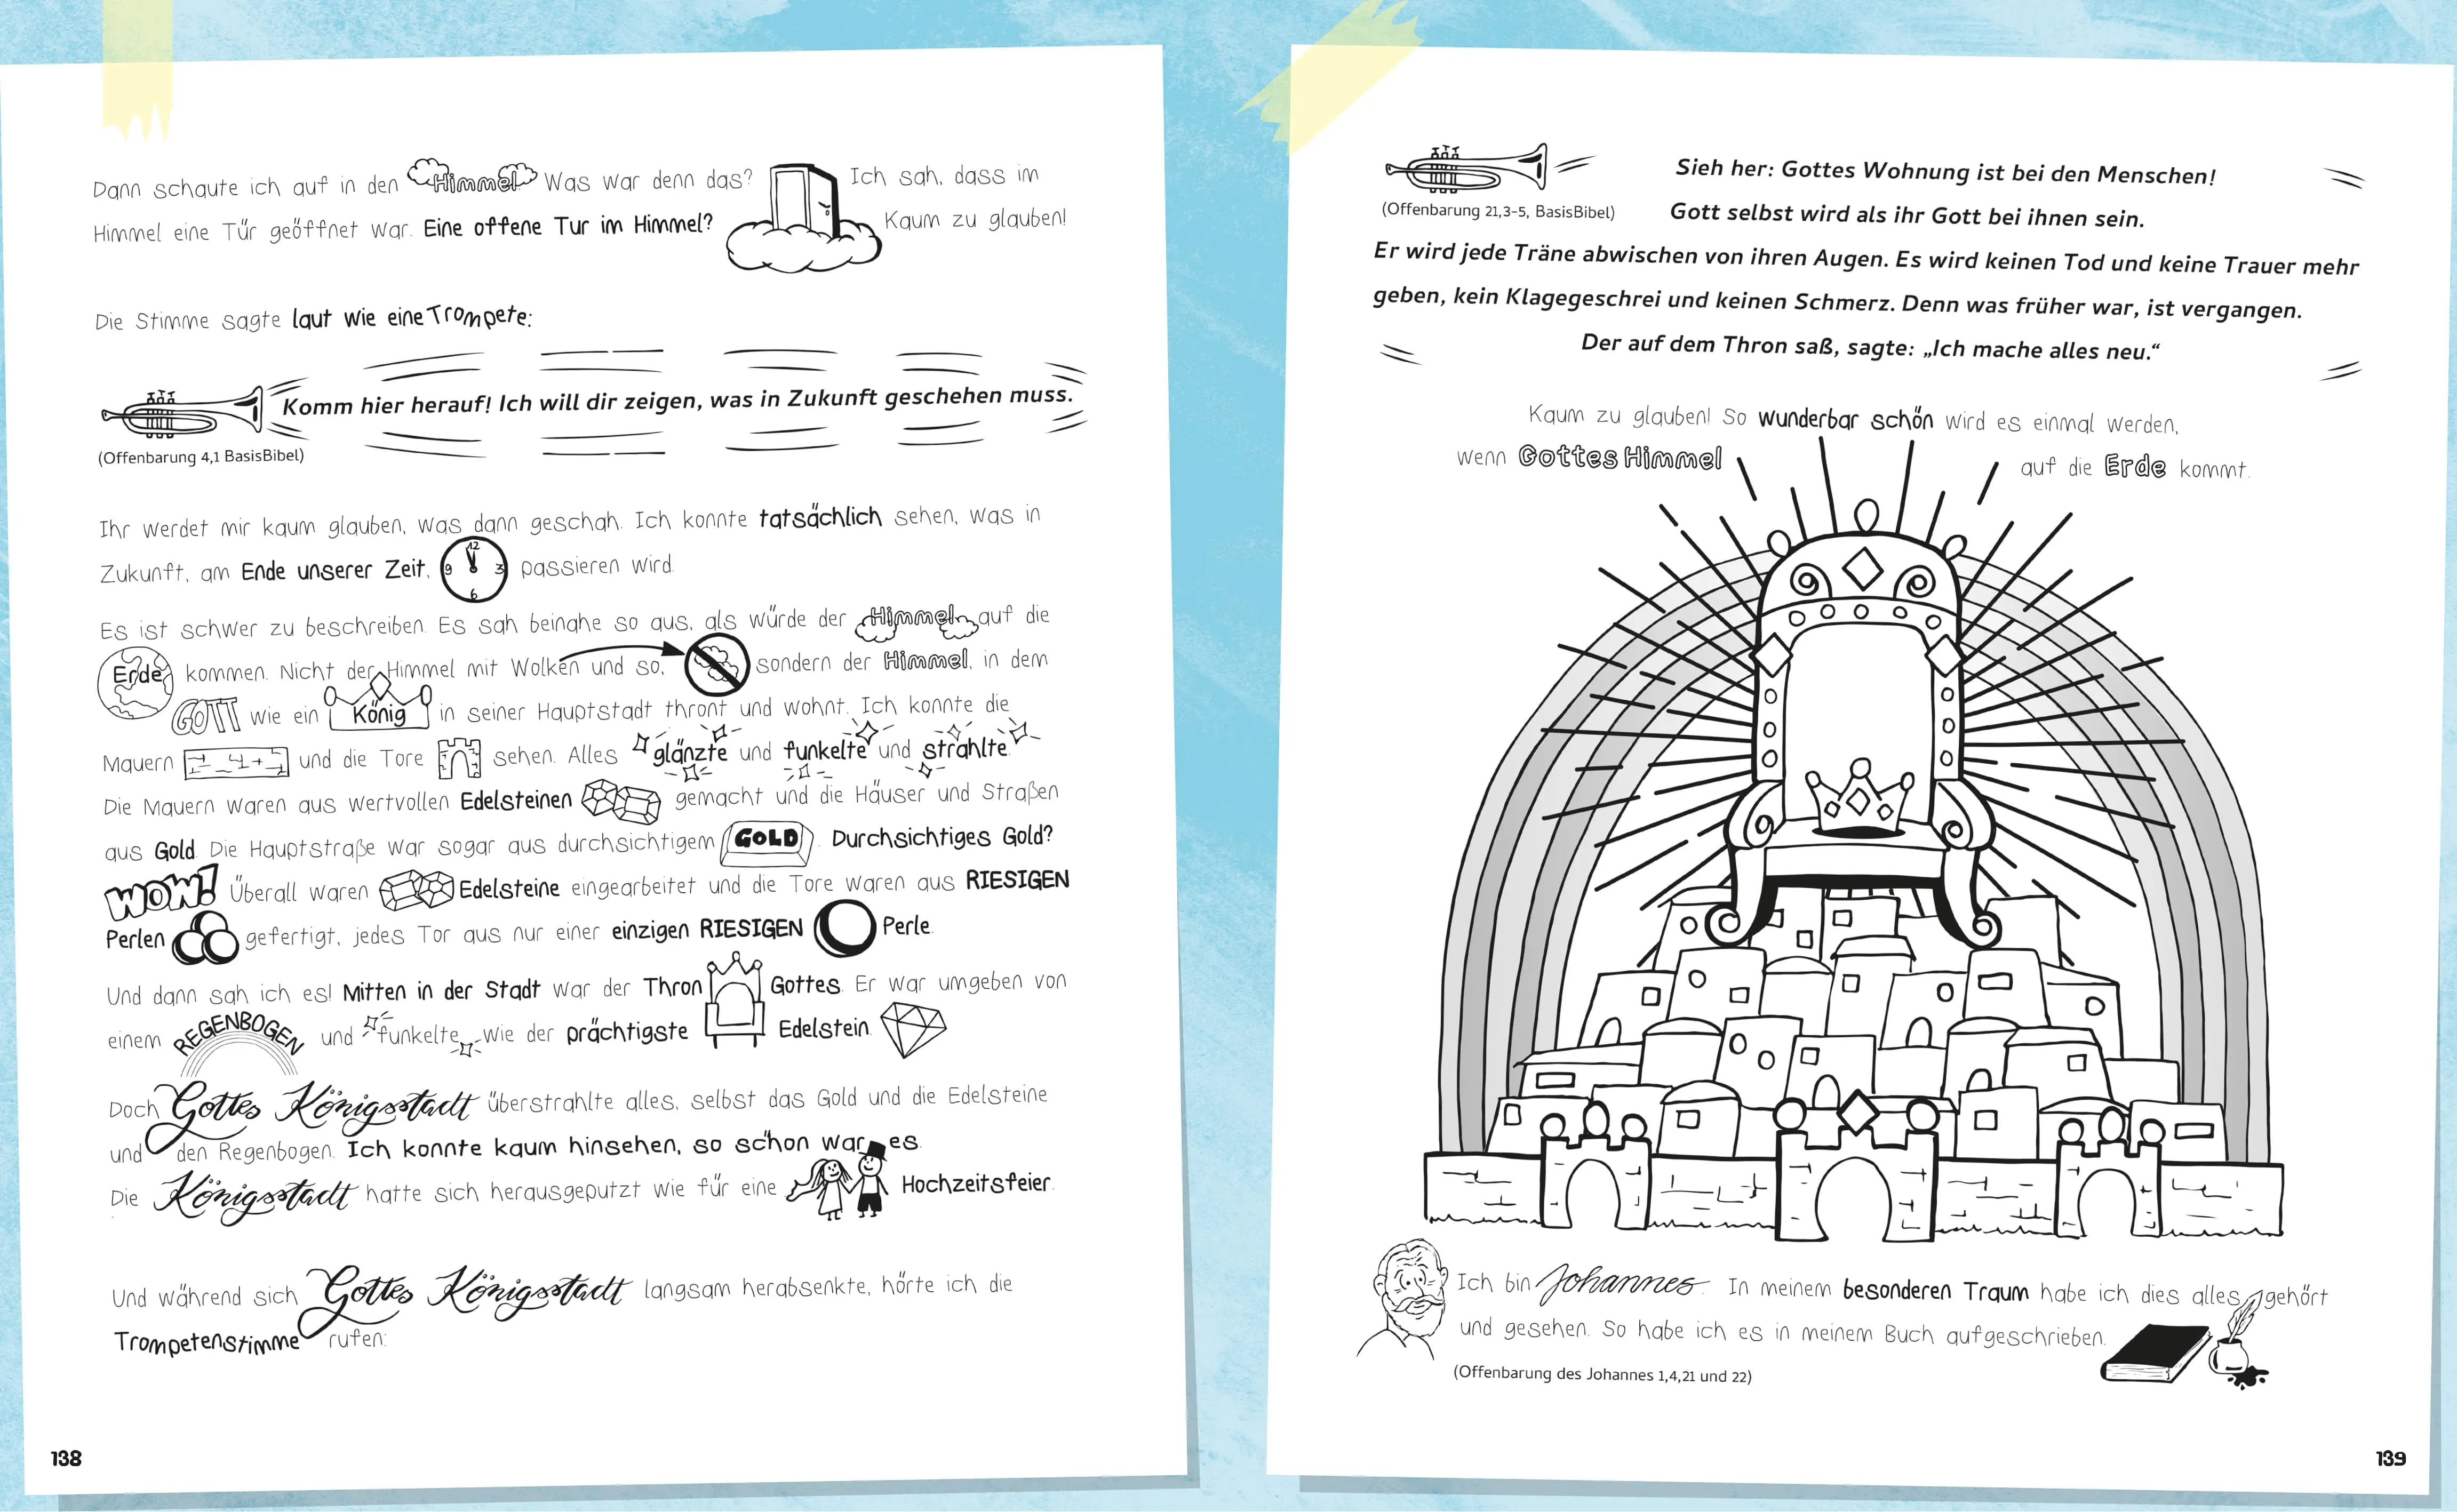 Dann schaute ich auf in den Himmel Was war denn das? Ich sah, dass im
Himmel eine Tür geöffnet war. Eine offene Tur im Himmel? Kaum zu glauben!
Die Stimme sagte laut wie eine Trompete:
Komm hier herauf! Ich will dir zeigen, was in Zukunft geschehen muss.
(Offenbarung 4,1 BasisBibel)
Ihr werdet mir kaum glauben, was dann geschah. Ich konnte tatsächlich sehen, was in
Zukunft, am Ende unserer Zeit, 12 3 6 9 passieren wird.
Es ist schwer zu beschreiben. Es sah beinahe so aus, als würde der Himmel auf die
Erde kommen. Nicht der Himmel mit Wolken und so, sondern der Himmel, in dem
GOTT wie ein König in seiner Hauptstadt thront und wohnt. Ich konnte die
Mauern und die Tore sehen. Alles glänzte und funkelte und strahlte.
Die Mauern waren aus wertvollen Edelsteinen gemacht und die Häuser und Straßen
aus Gold. Die Hauptstraße war sogar aus durchsichtigem GOLD. Durchsichtiges Gold?
WOW! Überall waren Edelsteine eingearbeitet und die Tore waren aus RIESIGEN
Perlen gefertigt, jedes Tor aus nur einer einzigen RIESIGEN Perle.
Und dann sah ich es! Mitten in der Stadt war der Thron Gottes. Er war umgeben von
einem REGENBOGEN und funkelte wie der prächtigste Edelstein.
Doch Gottes Königsstadt überstrahlte alles, selbst das Gold und die Edelsteine
und den Regenbogen. Ich konnte kaum hinsehen, so schön war es.
Die Königsstadt hatte sich herausgeputzt wie für eine Hochzeitsfeier.
Und während sich Gottes Königsstadt langsam herabsenkte, hörte ich die
Trompetenstimme rufen:
138
Sieh her: Gottes Wohnung ist bei den Menschen!
(Offenbarung 21,3-5, BasisBibel)
Gott selbst wird als ihr Gott bei ihnen sein.
Er wird jede Träne abwischen von ihren Augen. Es wird keinen Tod und keine Trauer mehr
geben, kein Klagegeschrei und keinen Schmerz. Denn was früher war, ist vergangen.
Der auf dem Thron saß, sagte: „Ich mache alles neu.“
Kaum zu glauben! So wunderbar schön wird es einmal werden,
wenn Gottes Himmel auf die Erde kommt.
Ich bin Johannes. In meinem besonderen Traum habe ich dies alles gehört
und gesehen. So habe ich es in meinem Buch aufgeschrieben.
(Offenbarung des Johannes 1,4,21 und 22)
139